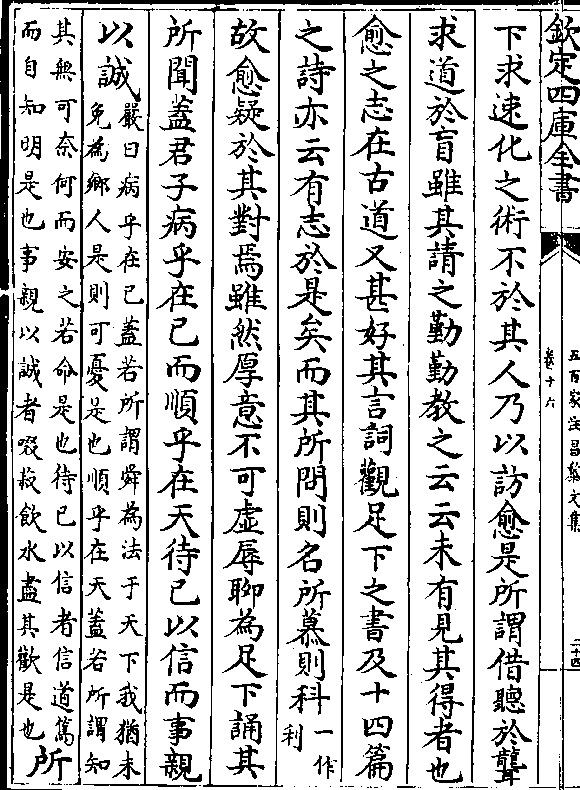 欽定四庫全書
五百家注昌黎文集
卷十六
二十四
下求速化之術不於其人乃以訪愈是所謂借聽於聾
求道於盲雖其請之勤勤教之云云未有見其得者也
愈之志在古道又甚好其言詞觀足下之書及十四篇
之詩亦云有志於是矣而其所問則名所慕則科一作利
故愈疑於其對焉雖然厚意不可虛辱聊為足下誦其
所聞蓋君子病乎在己而順乎在天待己以信而事親
以誠嚴曰病乎在己蓋若所謂舜為法于天下我猶未
免為鄉人是則可憂是也順乎在天蓋若所謂知
其無可奈何而安之若命是也待己以信者信道篤
而自知明是也事親以誠者啜菽飲水盡其歡是也所